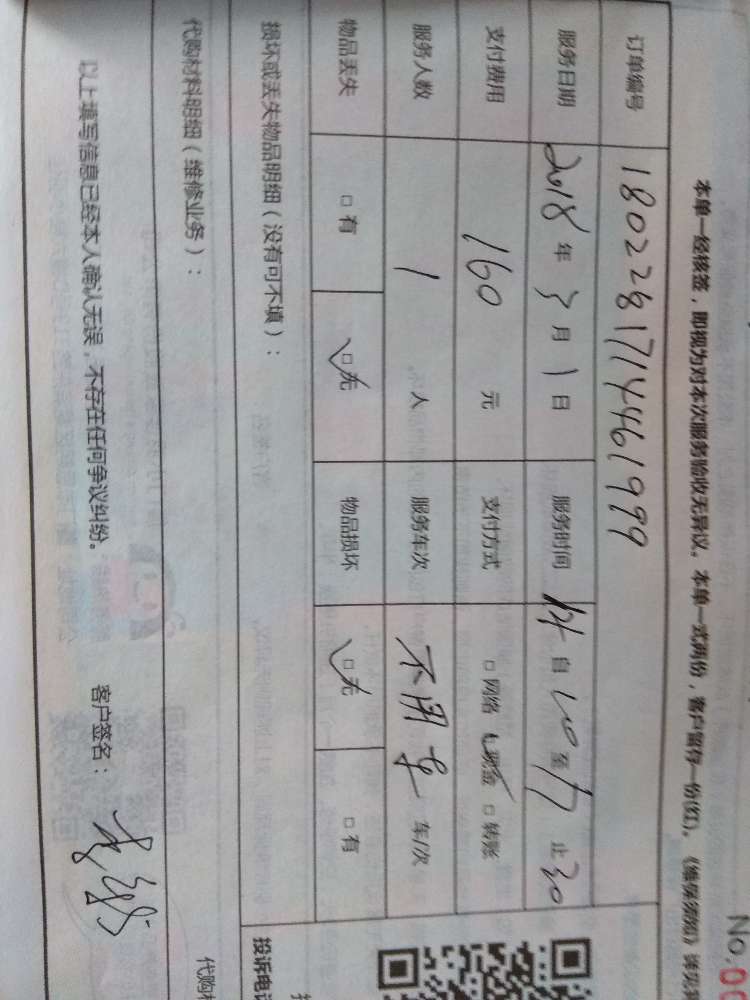 No.00
本单一经核签，即视为对本次服务验收无异议。本单一式两份，客户留存一份(红)。
订单编号 1802281714461999
服务日期 2018年3月1日 服务时间 自 至 止30
支付费用 160元 支付方式 □网络 现金 □转账
服务人数 1人 服务车次 不用车 车/次
物品丢失 □有 □无 物品损坏 □无 □有
损坏或丢失物品明细（没有可不填）：
投诉电话
代购材料明细（维修业务）：
代购材
以上填写信息已经本人确认无误，不存在任何争议纠纷。 客户签名：